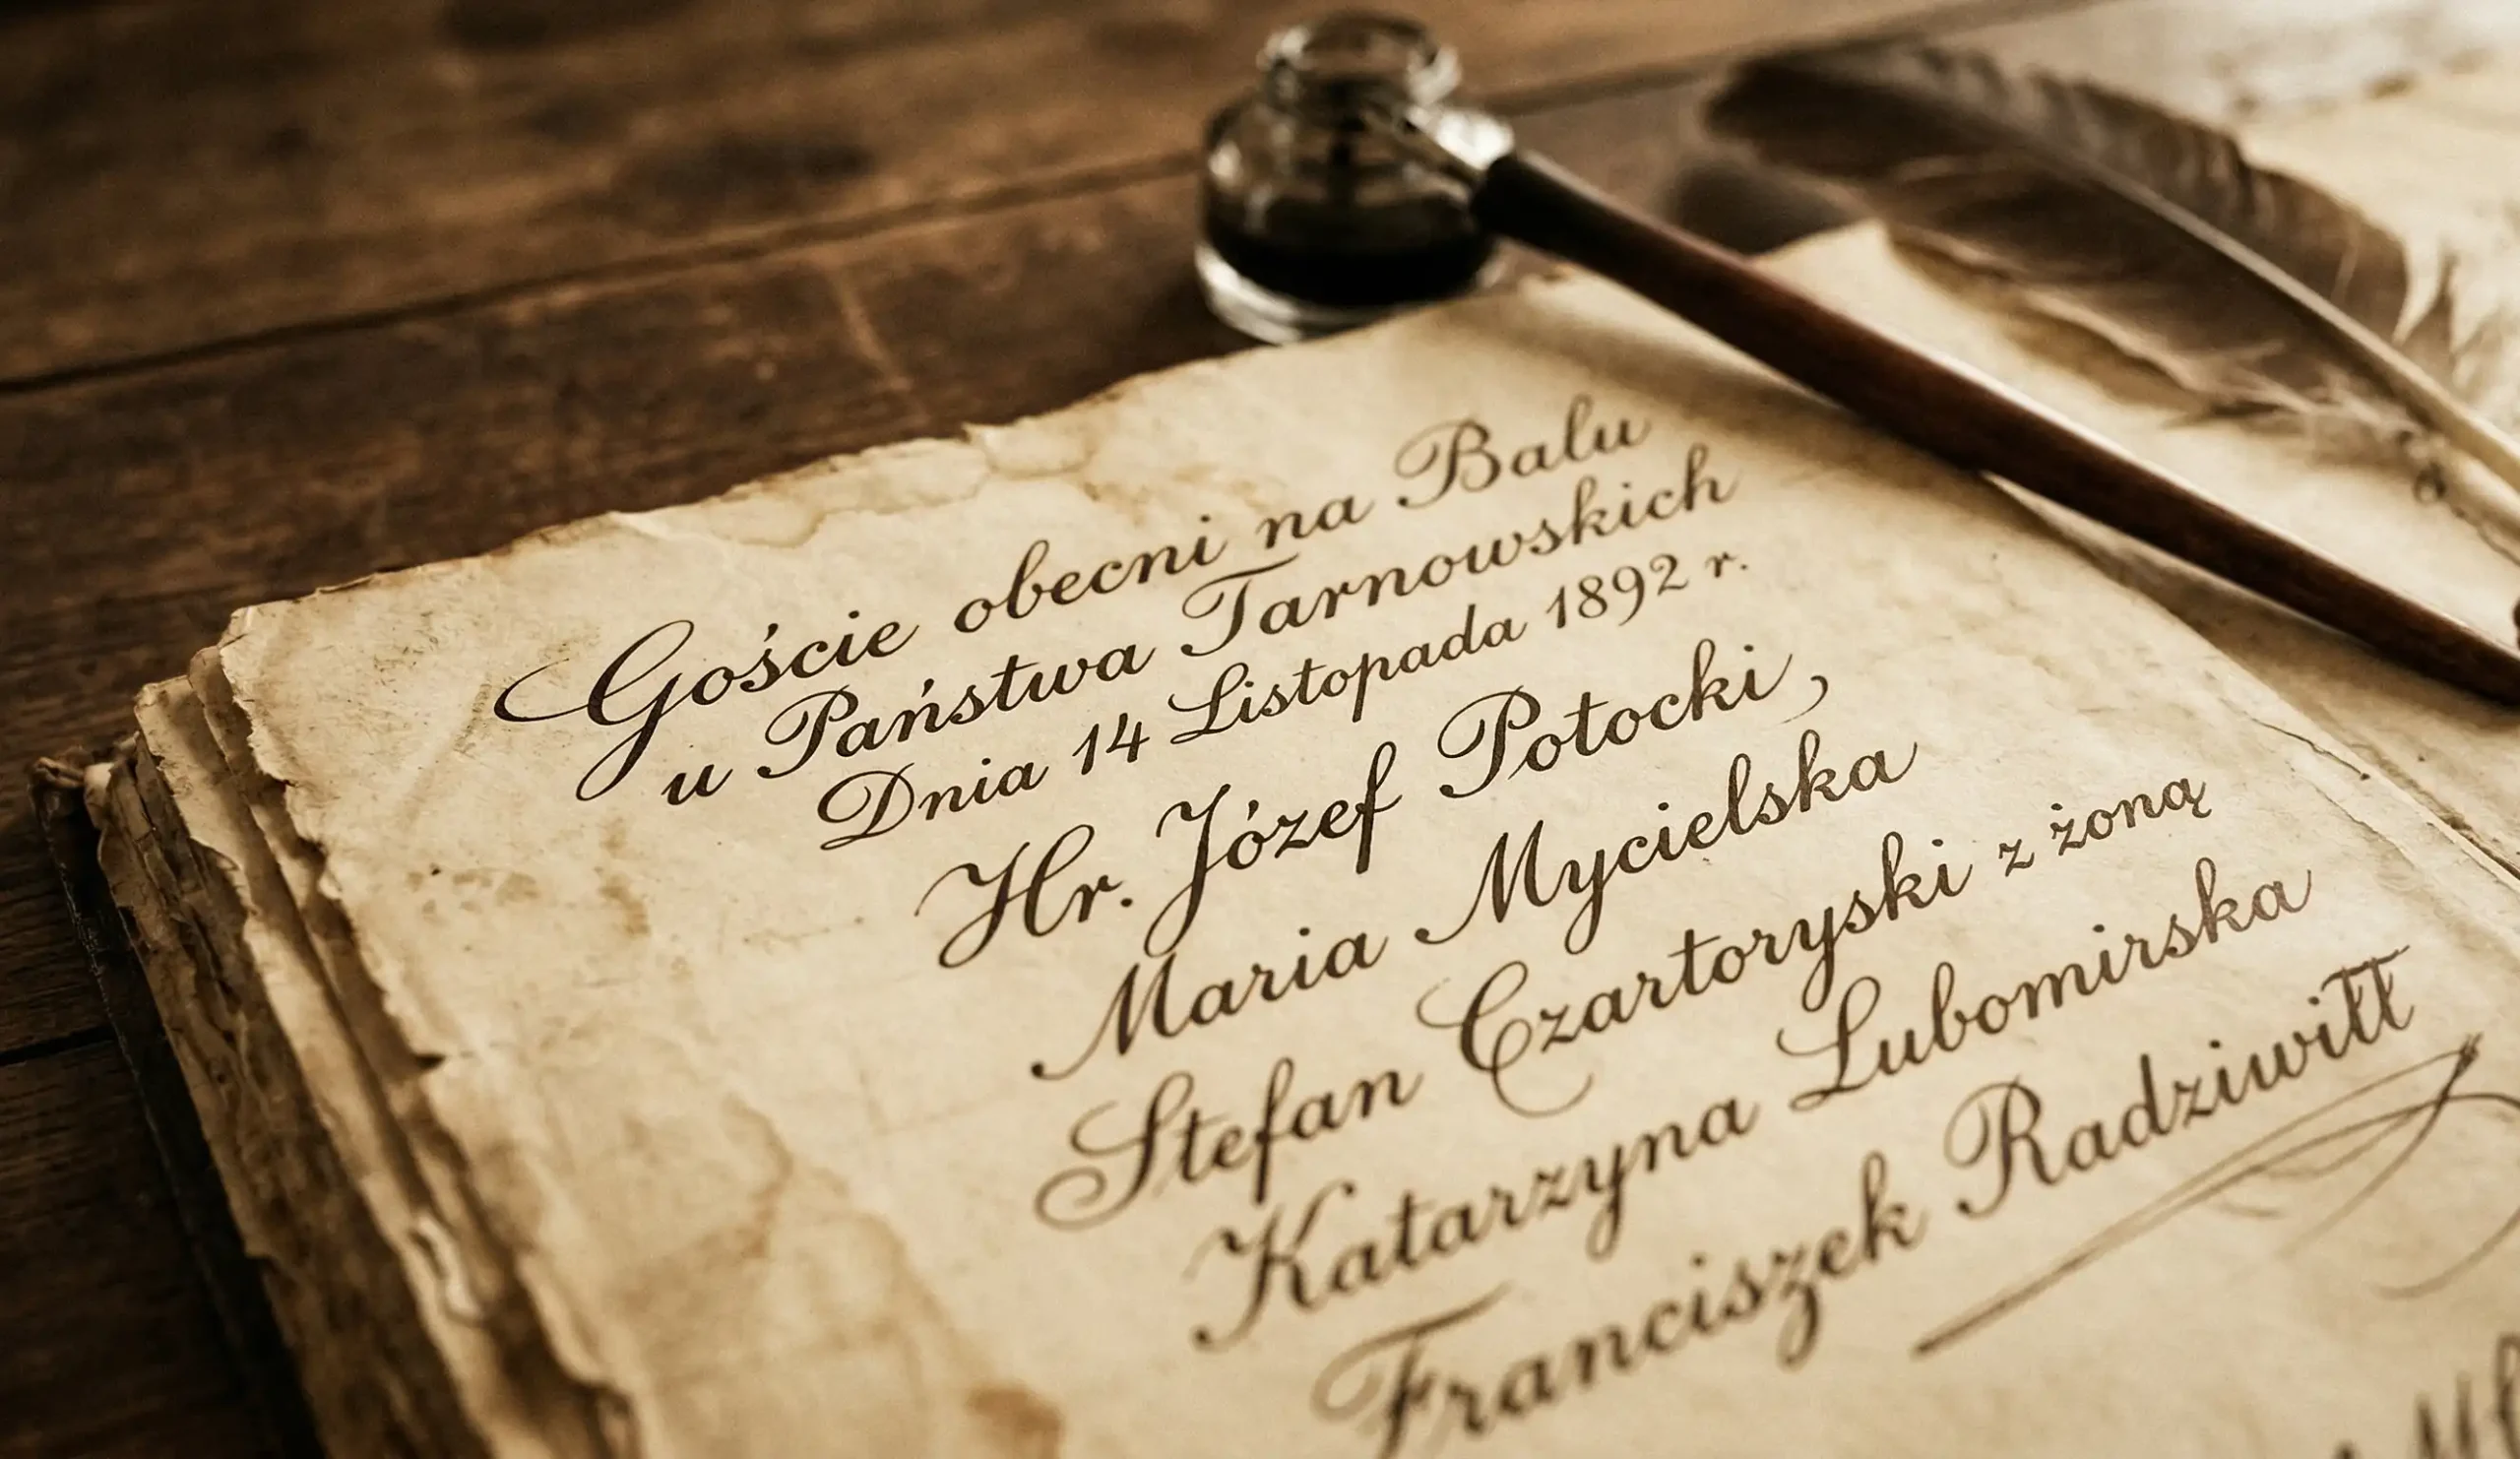 Goście obecni na Balu
u Państwa Tarnowskich
Dnia 14 Listopada 1892 r.
Hr. Józef Potocki,
Maria Mycielska
Stefan Czartoryski z żoną
Katarzyna Lubomirska
Franciszek Radziwiłł